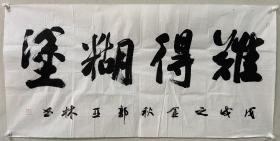 難得糊塗
戊戌之金秋郭亚林書